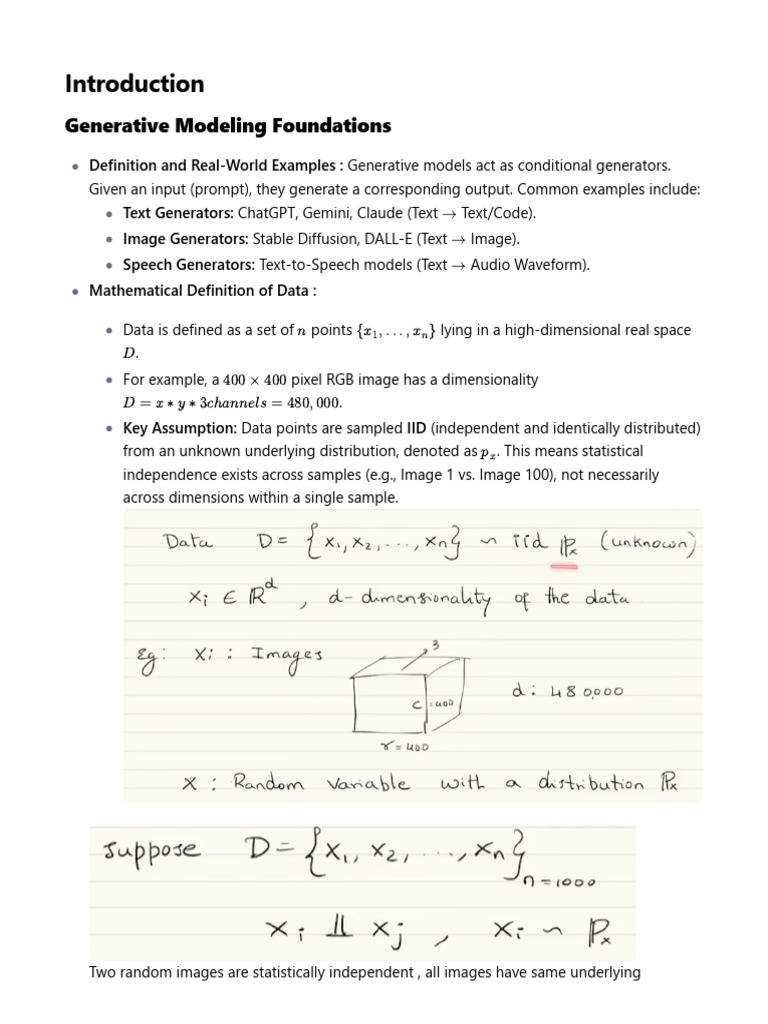 Introduction
Generative Modeling Foundations
• Definition and Real-World Examples : Generative models act as conditional generators.
Given an input (prompt), they generate a corresponding output. Common examples include:
• Text Generators: ChatGPT, Gemini, Claude (Text → Text/Code).
• Image Generators: Stable Diffusion, DALL-E (Text → Image).
• Speech Generators: Text-to-Speech models (Text → Audio Waveform).
• Mathematical Definition of Data :
• Data is defined as a set of n points {x₁, . . . , xₙ} lying in a high-dimensional real space
D.
• For example, a 400 × 400 pixel RGB image has a dimensionality
D = x ∗ y ∗ 3channels = 480, 000.
• Key Assumption: Data points are sampled IID (independent and identically distributed)
from an unknown underlying distribution, denoted as pₓ. This means statistical
independence exists across samples (e.g., Image 1 vs. Image 100), not necessarily
across dimensions within a single sample.
Data D = {x₁, x₂, ..., xₙ} ~ iid ℙₓ (unknown)
xᵢ ∈ ℝᵈ , d - dimensionality of the data
Eg: xᵢ : Images
3
c = 400
d : 480,000
r = 400
x : Random variable with a distribution ℙₓ
Suppose D = {x₁, x₂, ..., xₙ} n = 1000
xᵢ ⫫ xⱼ , xᵢ ~ ℙₓ
Two random images are statistically independent , all images have same underlying